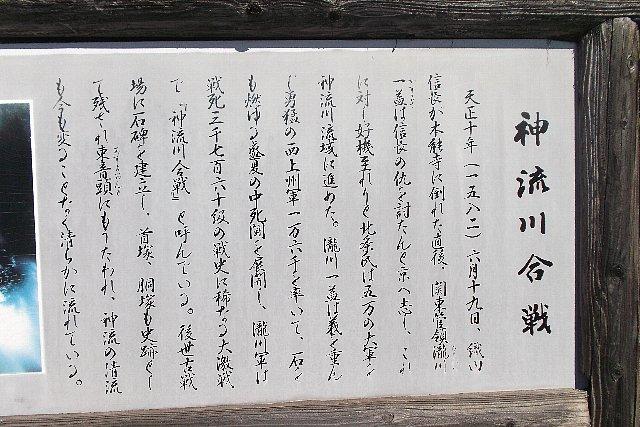 神流川合戦
天正十年(一五八二)六月十九日、織田
信長が本能寺に倒れた直後、関東管領瀧川
一益は信長の仇を討たんと京へ志し、これ
に対し好機至れりと北条氏は五万の大軍を
神流川流域に進めた。瀧川一益は義を重ん
じ勇猛の西上州軍一万六千を率いて、石を
も燃ゆる盛夏の中死闘を展開し、瀧川軍は
戦死三千七百六十級の戦史に稀なる大激戦
で『神流川合戦』と呼んでいる。後世古戦
場に石碑を建立し、首塚、胴塚も史跡とし
て残され東音頭にもうたわれ、神流の清流
も今も変ることなく清らかに流れている。